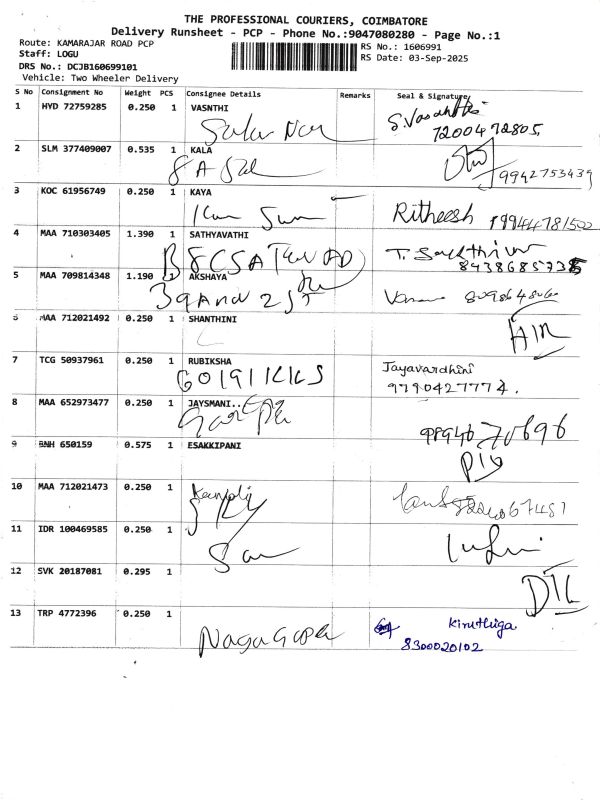 THE PROFESSIONAL COURIERS, COIMBATORE
Delivery Runsheet - PCP - Phone No.:9047080280 - Page No.:1
Route: KAMARAJAR ROAD PCP
Staff: LOGU
DRS No.: DCJB160699101
Vehicle: Two Wheeler Delivery
RS No.: 1606991
RS Date: 03-Sep-2025
S No Consignment No Weight PCS Consignee Details Remarks Seal & Signature
1 HYD 72759285 0.250 1 VASNTHI S. Vasanthi
7200472805
2 SLM 377409007 0.535 1 KALA
9942753439
3 KOC 61956749 0.250 1 KAYA
Ritheesh
4 MAA 710303405 1.390 1 SATHYAVATHI
8438685735
5 MAA 709814348 1.190 1 AKSHAYA
6 MAA 712021492 0.250 1 SHANTHINI
7 TCG 50937961 0.250 1 RUBIKSHA Jayavardhini
9790427774.
8 MAA 652973477 0.250 1 JAYSMANI..
9894670696
9 BNH 650159 0.575 1 ESAKKIPANI
10 MAA 712021473 0.250 1
11 IDR 100469585 0.250 1
12 SVK 20187081 0.295 1
DTL
13 TRP 4772396 0.250 1 Kiruthiga
Naga Gopa 8300020102